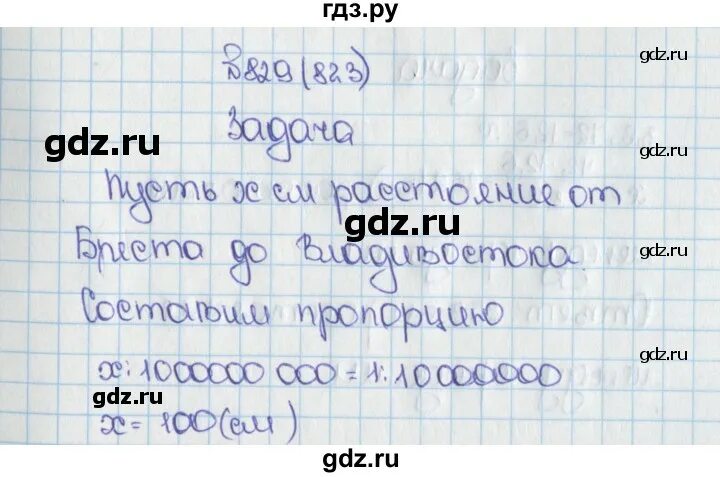 гдз.ру
gdz.ru
№829(823)
gdz.ru
Задача
gdz.ru
gdz.ru
Пусть x см расстояние от
gdz.ru
Бреста до Владивостока.
gdz.ru
Составим пропорцию
x:1000000 000=1:10000000
gdz.ru
gdz.ru
x=100(см)
gdz.ru
gdz.ru